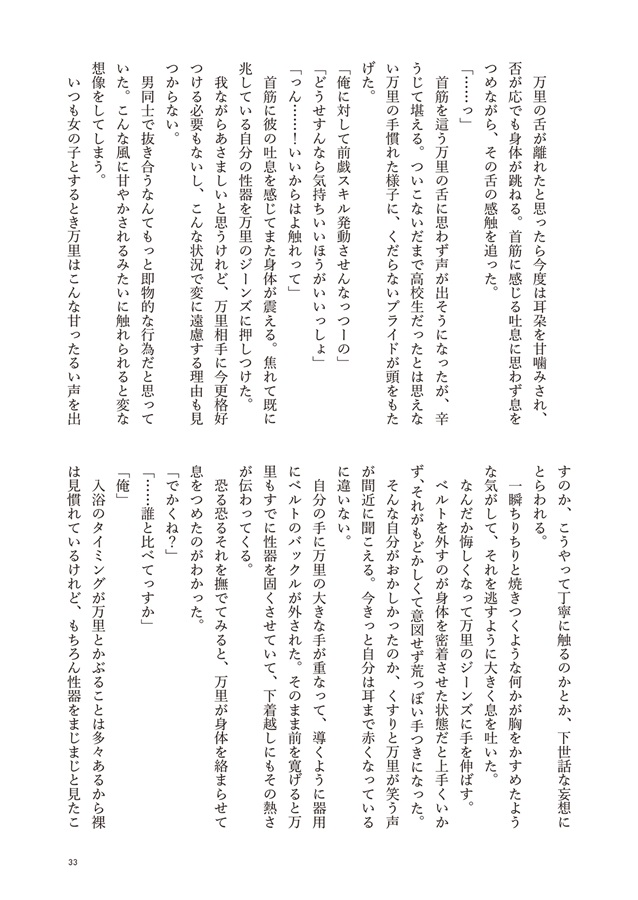 万里の舌が離れたと思ったら今度は耳朶を甘噛みされ、
否が応でも身体が跳ねる。首筋に感じる吐息に思わず息を
つめながら、その舌の感触を追った。
「……っ」
首筋を這う万里の舌に思わず声が出そうになったが、辛
うじて堪える。ついこないだまで高校生だったとは思えな
い万里の手慣れた様子に、くだらないプライドが頭をもた
げた。
「俺に対して前戯スキル発動させんなっつーの」
「どうせすんなら気持ちいいほうがいいっしょ」
「っん……！いいからはよ触れって」
首筋に彼の吐息を感じてまた身体が震える。焦れて既に
兆している自分の性器を万里のジーンズに押しつけた。
我ながらあさましいと思うけれど、万里相手に今更格好
つける必要もないし、こんな状況で変に遠慮する理由も見
つからない。
男同士で抜き合うなんてもっと即物的な行為だと思って
いた。こんな風に甘やかされるみたいに触れられると変な
想像をしてしまう。
いつも女の子とするとき万里はこんな甘ったるい声を出
すのか、こうやって丁寧に触るのかとか、下世話な妄想に
とらわれる。
一瞬ちりちりと焼きつくような何かが胸をかすめたよう
な気がして、それを逃すように大きく息を吐いた。
なんだか悔しくなって万里のジーンズに手を伸ばす。
ベルトを外すのが身体を密着させた状態だと上手くいか
ず、それがもどかしくて意図せず荒っぽい手つきになった。
そんな自分がおかしかったのか、くすりと万里が笑う声
が間近に聞こえる。今きっと自分は耳まで赤くなっている
に違いない。
自分の手に万里の大きな手が重なって、導くように器用
にベルトのバックルが外された。そのまま前を寛げると万
里もすでに性器を固くさせていて、下着越しにもその熱さ
が伝わってくる。
恐る恐るそれを撫でてみると、万里が身体を絡まらせて
息をつめたのがわかった。
「でかくね？」
「……誰と比べてっすか」
「俺」
入浴のタイミングが万里とかぶることは多々あるから裸
は見慣れているけれど、もちろん性器をまじまじと見たこ
33